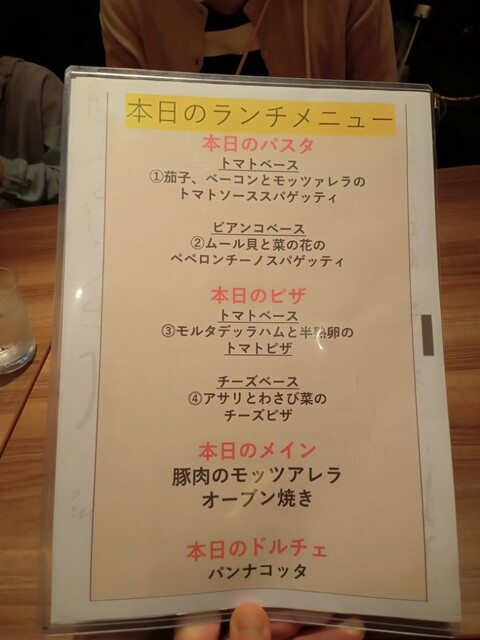 本日のランチメニュー
本日のパスタ
トマトベース
①茄子、ベーコンとモッツァレラの
トマトソーススパゲッティ
ビアンコベース
②ムール貝と菜の花の
ペペロンチーノスパゲッティ
本日のピザ
トマトベース
③モルタデッラハムと半熟卵の
トマトピザ
チーズベース
④アサリとわさび菜の
チーズピザ
本日のメイン
豚肉のモッツアレラ
オーブン焼き
本日のドルチェ
パンナコッタ